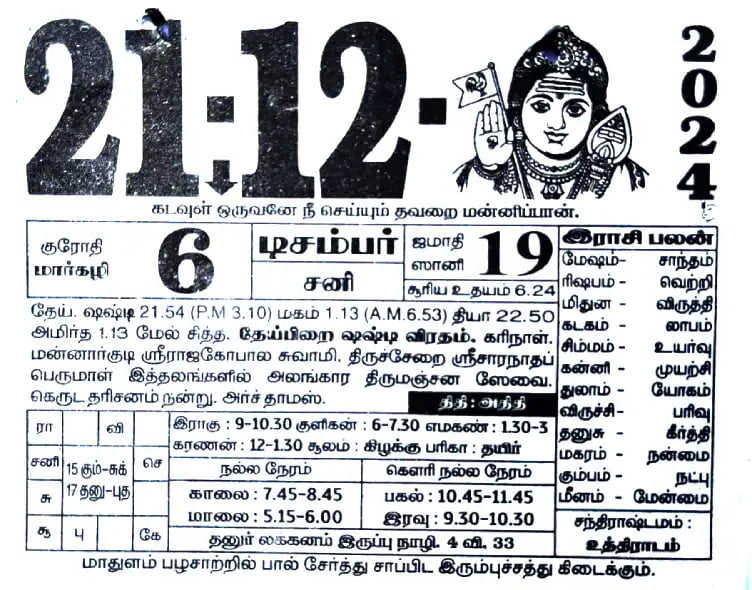 21.12.
2024
கடவுள் ஒருவனே நீ செய்யும் தவறை மன்னிப்பான்.
குரோதி
மார்கழி
6
டிசம்பர்
சனி
ஜமாதி
ஸானி
19
சூரிய உதயம் 6.24
இராசி பலன்
மேஷம்- சாந்தம்
ரிஷபம்- வெற்றி
மிதுன - விருத்தி
கடகம் - லாபம்
சிம்மம் - உயர்வு
கன்னி - முயற்சி
துலாம் - யோகம்
விருச்சி- பரிவு
தனுசு - கீர்த்தி
மகரம் - நன்மை
கும்பம் - நட்பு
மீனம் - மேன்மை
சந்திராஷ்டமம் :
உத்திராடம்
தேய். ஷஷ்டி 21.54 (P.M 3.10) மகம் 1.13 (A.M.6.53) தியா 22.50
அமிர்த 1.13 மேல் சித்த. தேய்பிறை ஷஷ்டி விரதம். கரிநாள்.
மன்னார்குடி ஸ்ரீராஜகோபால சுவாமி, திருச்சேறை ஸ்ரீசாரநாதப்
பெருமாள் இத்தலங்களில் அலங்கார திருமஞ்சன ஸேவை.
கெருட தரிசனம் நன்று. அர்ச் தாமஸ்.
திதி : அதிதி
ரா வி
சனி செ
சு
சூ பு கே
15 கும்-சுக்
17 தனு-புத
இராகு : 9-10.30 குளிகன் : 6-7.30 எமகண் : 1.30-3
கரணன் : 12-1.30 சூலம் : கிழக்கு பரிகா : தயிர்
நல்ல நேரம்
காலை : 7.45-8.45
மாலை : 5.15-6.00
கௌரி நல்ல நேரம்
பகல் : 10.45-11.45
இரவு : 9.30-10.30
தனுர் லக்கனம் இருப்பு நாழி. 4 வி. 33
மாதுளம் பழசாற்றில் பால் சேர்த்து சாப்பிட இரும்புச்சத்து கிடைக்கும்.